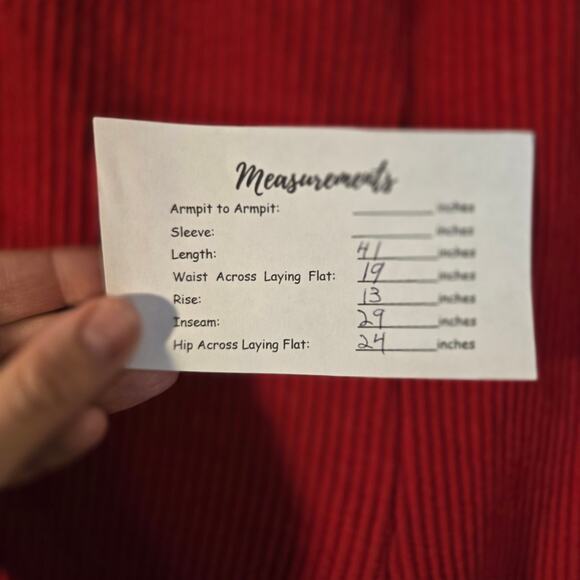 Measurements
Armpit to Armpit: ________ inches
Sleeve: ________ inches
Length: 41 inches
Waist Across Laying Flat: 19 inches
Rise: 13 inches
Inseam: 29 inches
Hip Across Laying Flat: 24 inches